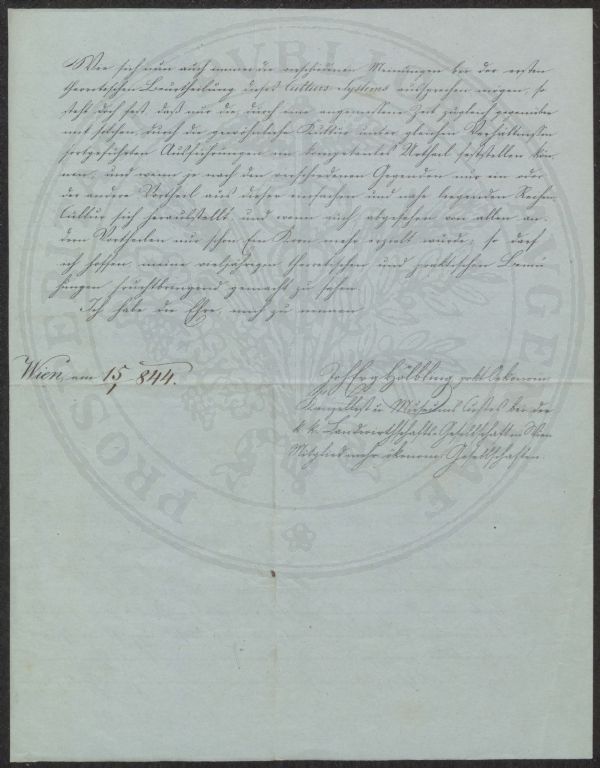 Wie sich nun auch immer die verschiedenen Meinungen bei der ersten
theoretischen Beurtheilung dieses Culturs-Systems aussprechen mögen, so
steht doch fest, daß nur die, durch eine angemessene Zeit zugleich gegenüber
mit solchen, durch die gewöhnliche Kultur unter gleichen Verhältnissen
fortgeführten Ausführungen ein kompetentes Urtheil feststellen kön-
nen, und wenn je nach den verschiedenen Gegenden nur ein oder
der andere Vortheil aus dieser einfachen und nahe liegenden Reihen-
Cultur sich herausstellt, und wenn auch abgesehen von allen an-
dern Vortheilen nur schon Ein Korn mehr erzielt würde; so darf
ich hoffen, meine vieljährigen theoretischen und praktischen Bemü-
hungen fruchtbringend gemacht zu sehen.
Ich habe die Ehre, mich zu nennen
Wien, am 15/1 844.
Joh Hölbling, Oekonom
Kanzellist u Museums Custos bei der
k. k. Landwirthschafts-Gesellschaft in Wien
Mitglied mehr. ökonom. Gesellschaften.
PROSPERITATI PUBLICAE AUGENDAE